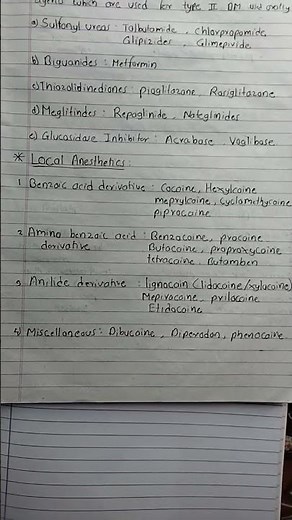 agents which are used for type II DM and orally
a) Sulfonyl ureas : Tolbutamide, chlorpropamide,
Glipizides, Glimepiride
b) Biguanides : Metformin
c) Thiazolidinediones : pioglitazone, Rosiglitazone
d) Meglitindes : Repaglinide, Nateglinides
e) Glucosidase Inhibitor : Acrabose, Voglibose
* Local Anesthetics :
1. Benzoic acid derivative : Cocaine, Hexylcaine
meprylcaine, cyclomethycaine
piprocaine
2. Amino benzoic acid : Benzocaine, procaine
derivative Butacaine, propoxycaine
tetracaine, Butamben
3. Anilide derivative : lignocain (lidocaine/xylocaine)
Mepivacaine, prilocaine
Etidocaine
4) Miscellaneous : Dibucaine, Diperodon, phenocaine